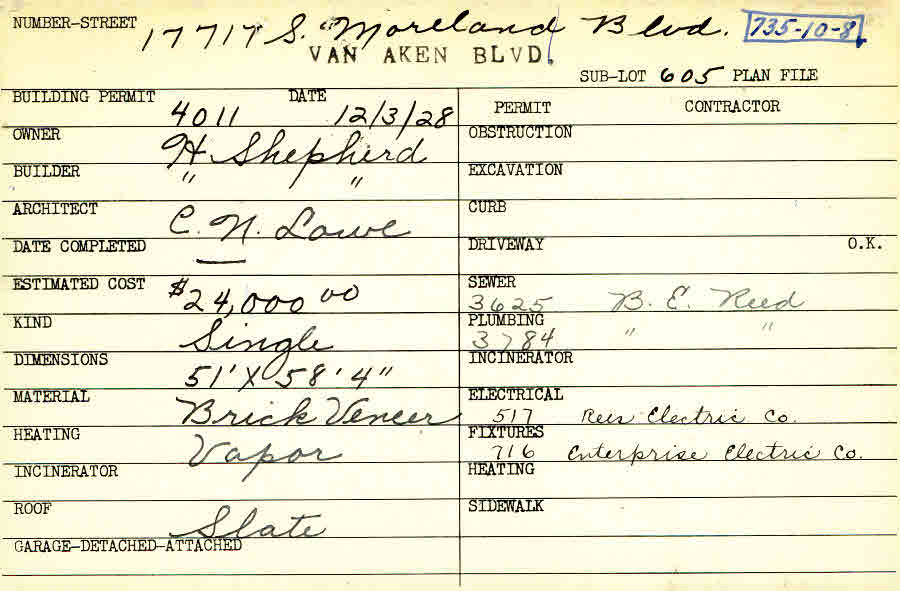 NUMBER-STREET 17717 S. Moreland Blvd. 735-10-8
VAN AKEN BLVD.
SUB-LOT 605 PLAN FILE
BUILDING PERMIT 4011 DATE 12/3/28
OWNER H. Shepherd
BUILDER " "
ARCHITECT C. N. Lowe
DATE COMPLETED —
ESTIMATED COST $24,000 00
KIND Single
DIMENSIONS 51' X 58' 4"
MATERIAL Brick Veneer
HEATING Vapor
INCINERATOR
ROOF Slate
GARAGE-DETACHED-ATTACHED
PERMIT CONTRACTOR
OBSTRUCTION
EXCAVATION
CURB
DRIVEWAY O.K.
SEWER 3625 B. E. Reed
PLUMBING 3784 " "
INCINERATOR
ELECTRICAL 517 Rees Electric Co.
FIXTURES 716 Enterprise Electric Co.
HEATING
SIDEWALK